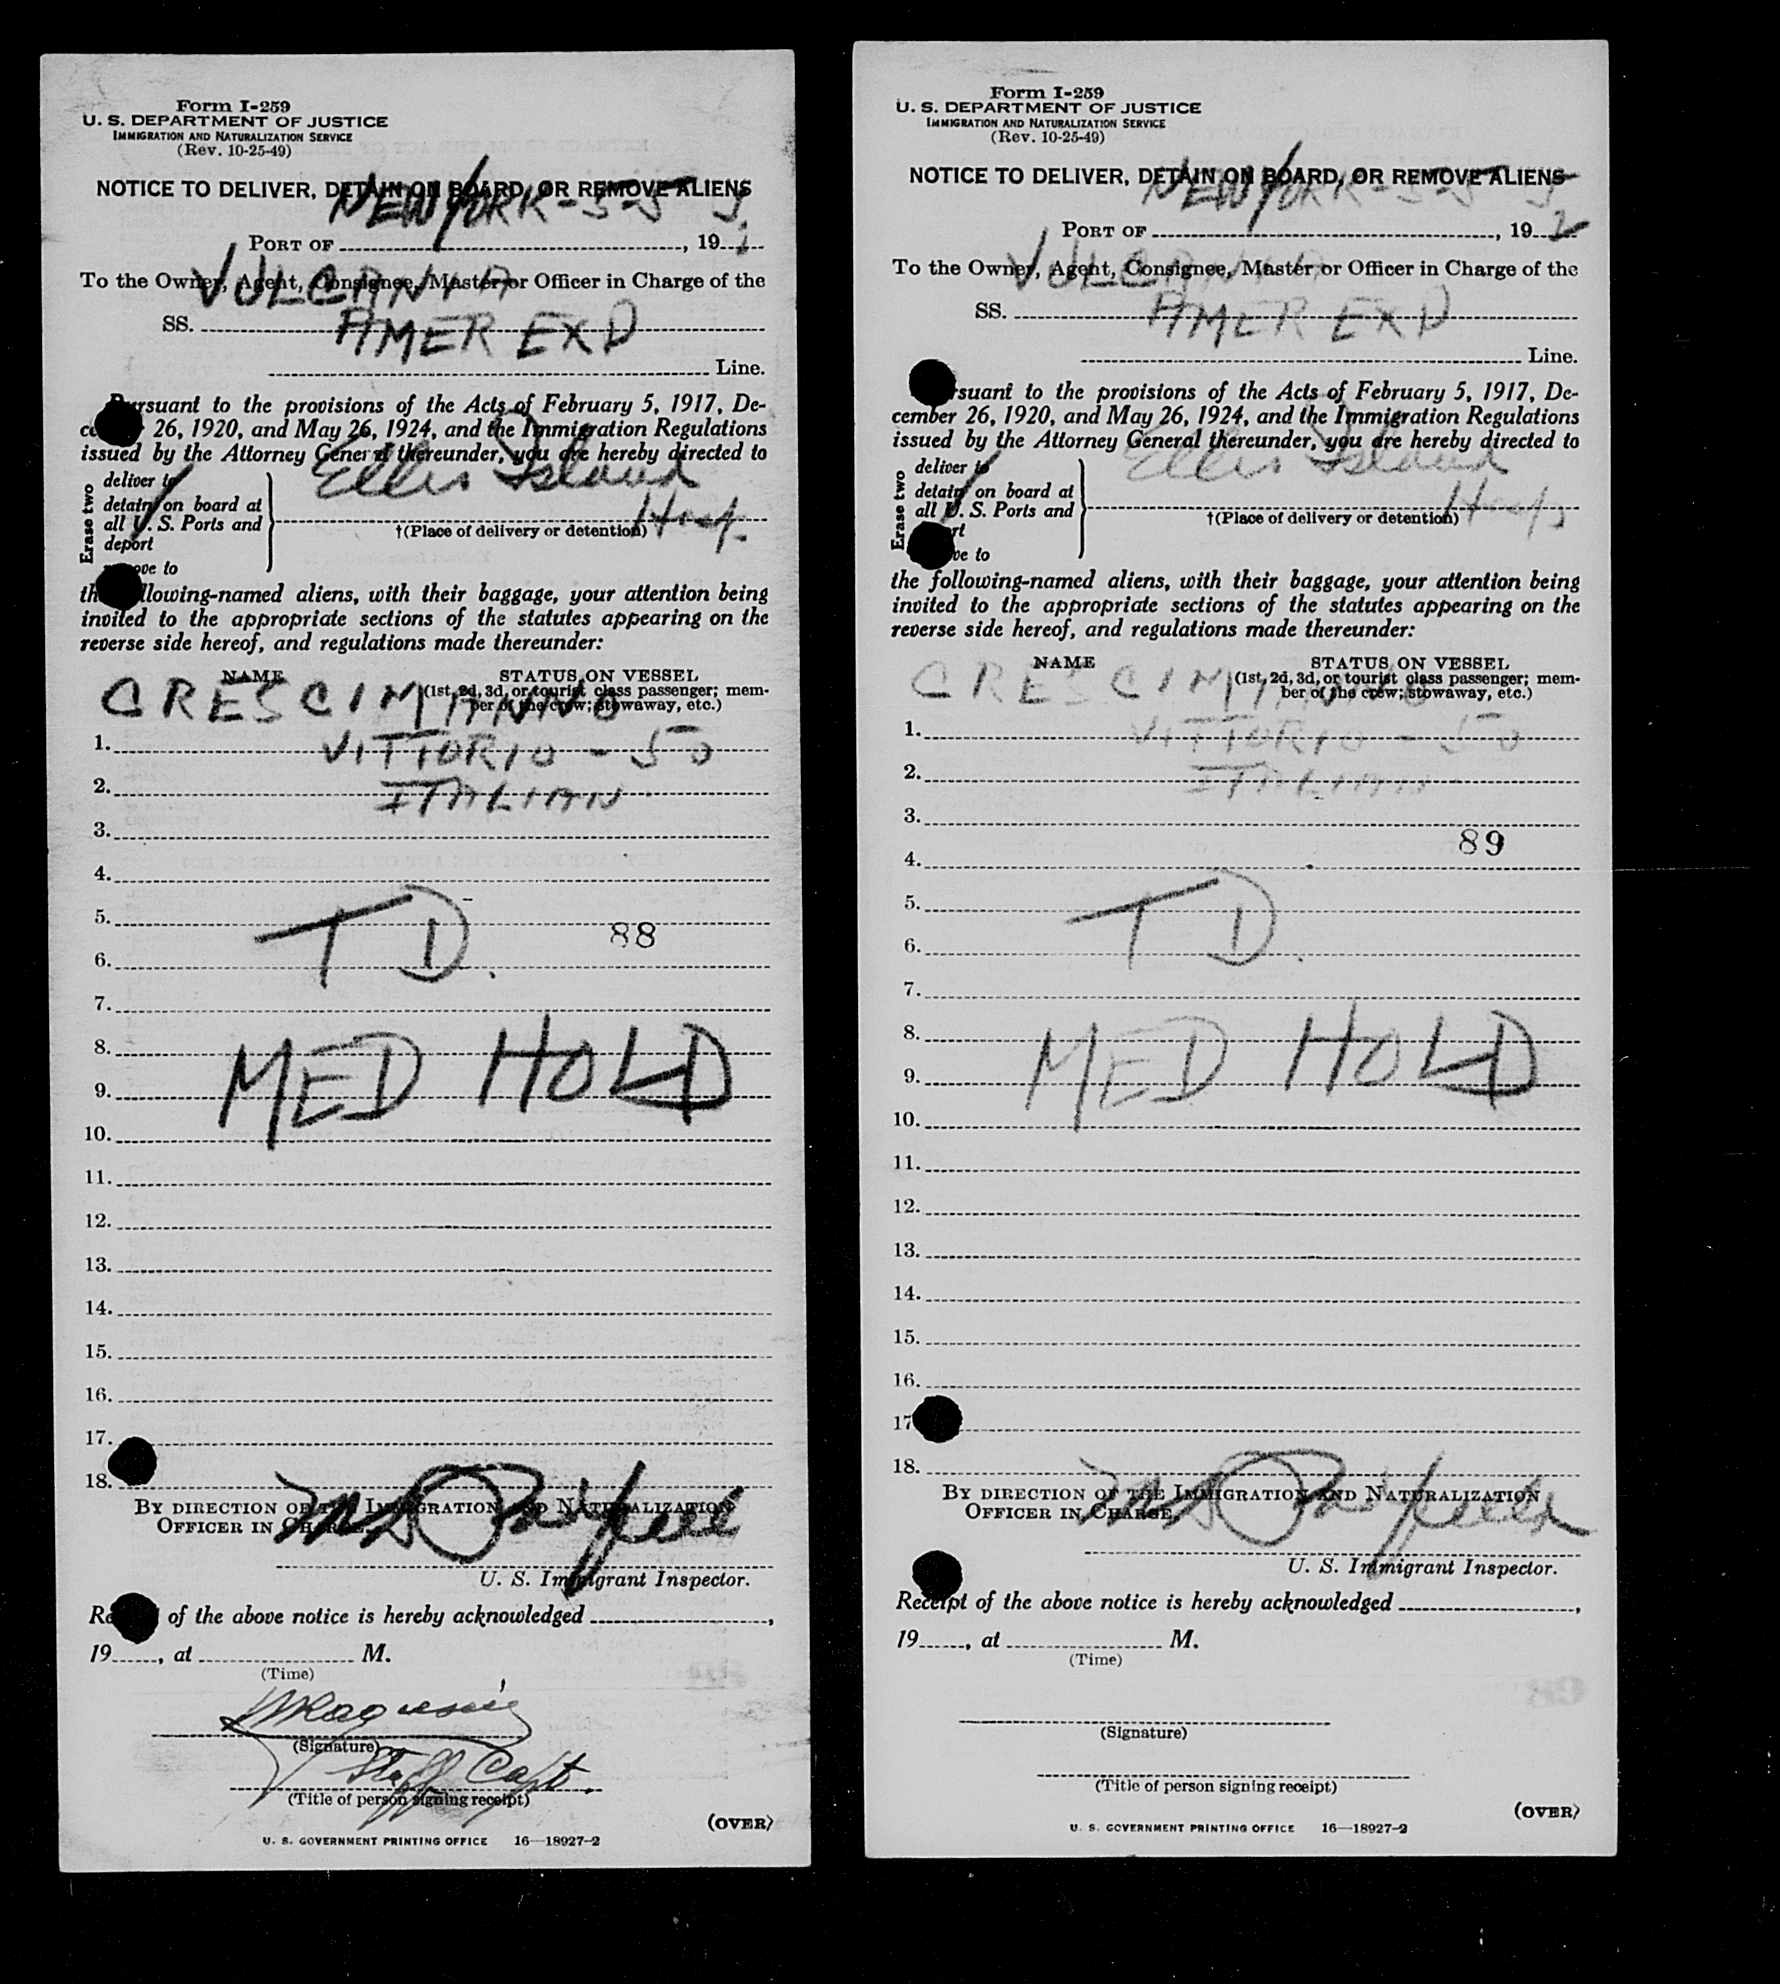 Form I-259
U. S. DEPARTMENT OF JUSTICE
IMMIGRATION AND NATURALIZATION SERVICE
(Rev. 10-25-49)
NOTICE TO DELIVER, DETAIN ON BOARD, OR REMOVE ALIENS
NEW YORK - 5-5
PORT OF , 19
VULCANIA
To the Owner, Agent, Consignee, Master or Officer in Charge of the
SS. AMER EXP
Line.
Pursuant to the provisions of the Acts of February 5, 1917, De-
26, 1920, and May 26, 1924, and the Immigration Regulations
issued by the Attorney General thereunder, you are hereby directed to
Erase two
deliver to
detain on board at
all U. S. Ports and
deport
ove to
Ellis Island
Hosp.
†(Place of delivery or detention)
the following-named aliens, with their baggage, your attention being
invited to the appropriate sections of the statutes appearing on the
reverse side hereof, and regulations made thereunder:
NAME STATUS ON VESSEL
(1st, 2d, 3d, or tourist class passenger; mem-
ber of the crew; stowaway, etc.)
CRESCIMANNO
1. VITTORIO - 50
2. ITALIAN
3.
4.
5. TD. 88
6.
7.
8. MED HOLD
9.
10.
11.
12.
13.
14.
15.
16.
17.
18.
BY DIRECTION OF THE IMMIGRATION AND NATURALIZATION
OFFICER IN CHARGE
U. S. Immigrant Inspector.
Receipt of the above notice is hereby acknowledged ,
19 , at M.
(Time)
(Signature)
Staff Capt.
(Title of person signing receipt)
(OVER)
U. S. GOVERNMENT PRINTING OFFICE 16—18927-2
Form I-259
U. S. DEPARTMENT OF JUSTICE
IMMIGRATION AND NATURALIZATION SERVICE
(Rev. 10-25-49)
NOTICE TO DELIVER, DETAIN ON BOARD, OR REMOVE ALIENS
NEW YORK - 5-5
PORT OF , 19 2
VULCANIA
To the Owner, Agent, Consignee, Master or Officer in Charge of the
SS. AMER EXP
Line.
rsuant to the provisions of the Acts of February 5, 1917, De-
cember 26, 1920, and May 26, 1924, and the Immigration Regulations
issued by the Attorney General thereunder, you are hereby directed to
Erase two
deliver to
detain on board at
all U. S. Ports and
rt
ve to
Ellis Island
Hosp
†(Place of delivery or detention)
the following-named aliens, with their baggage, your attention being
invited to the appropriate sections of the statutes appearing on the
reverse side hereof, and regulations made thereunder:
NAME STATUS ON VESSEL
(1st, 2d, 3d, or tourist class passenger; mem-
ber of the crew; stowaway, etc.)
CRESCIMANNO
1. VITTORIO - 50
2. ITALIAN
3.
89
4.
5. TD.
6.
7.
8. MED HOLD
9.
10.
11.
12.
13.
14.
15.
16.
17
18.
BY DIRECTION OF THE IMMIGRATION AND NATURALIZATION
OFFICER IN CHARGE
U. S. Immigrant Inspector.
Receipt of the above notice is hereby acknowledged ,
19 , at M.
(Time)
(Signature)
(Title of person signing receipt)
(OVER)
U. S. GOVERNMENT PRINTING OFFICE 16—18927-2